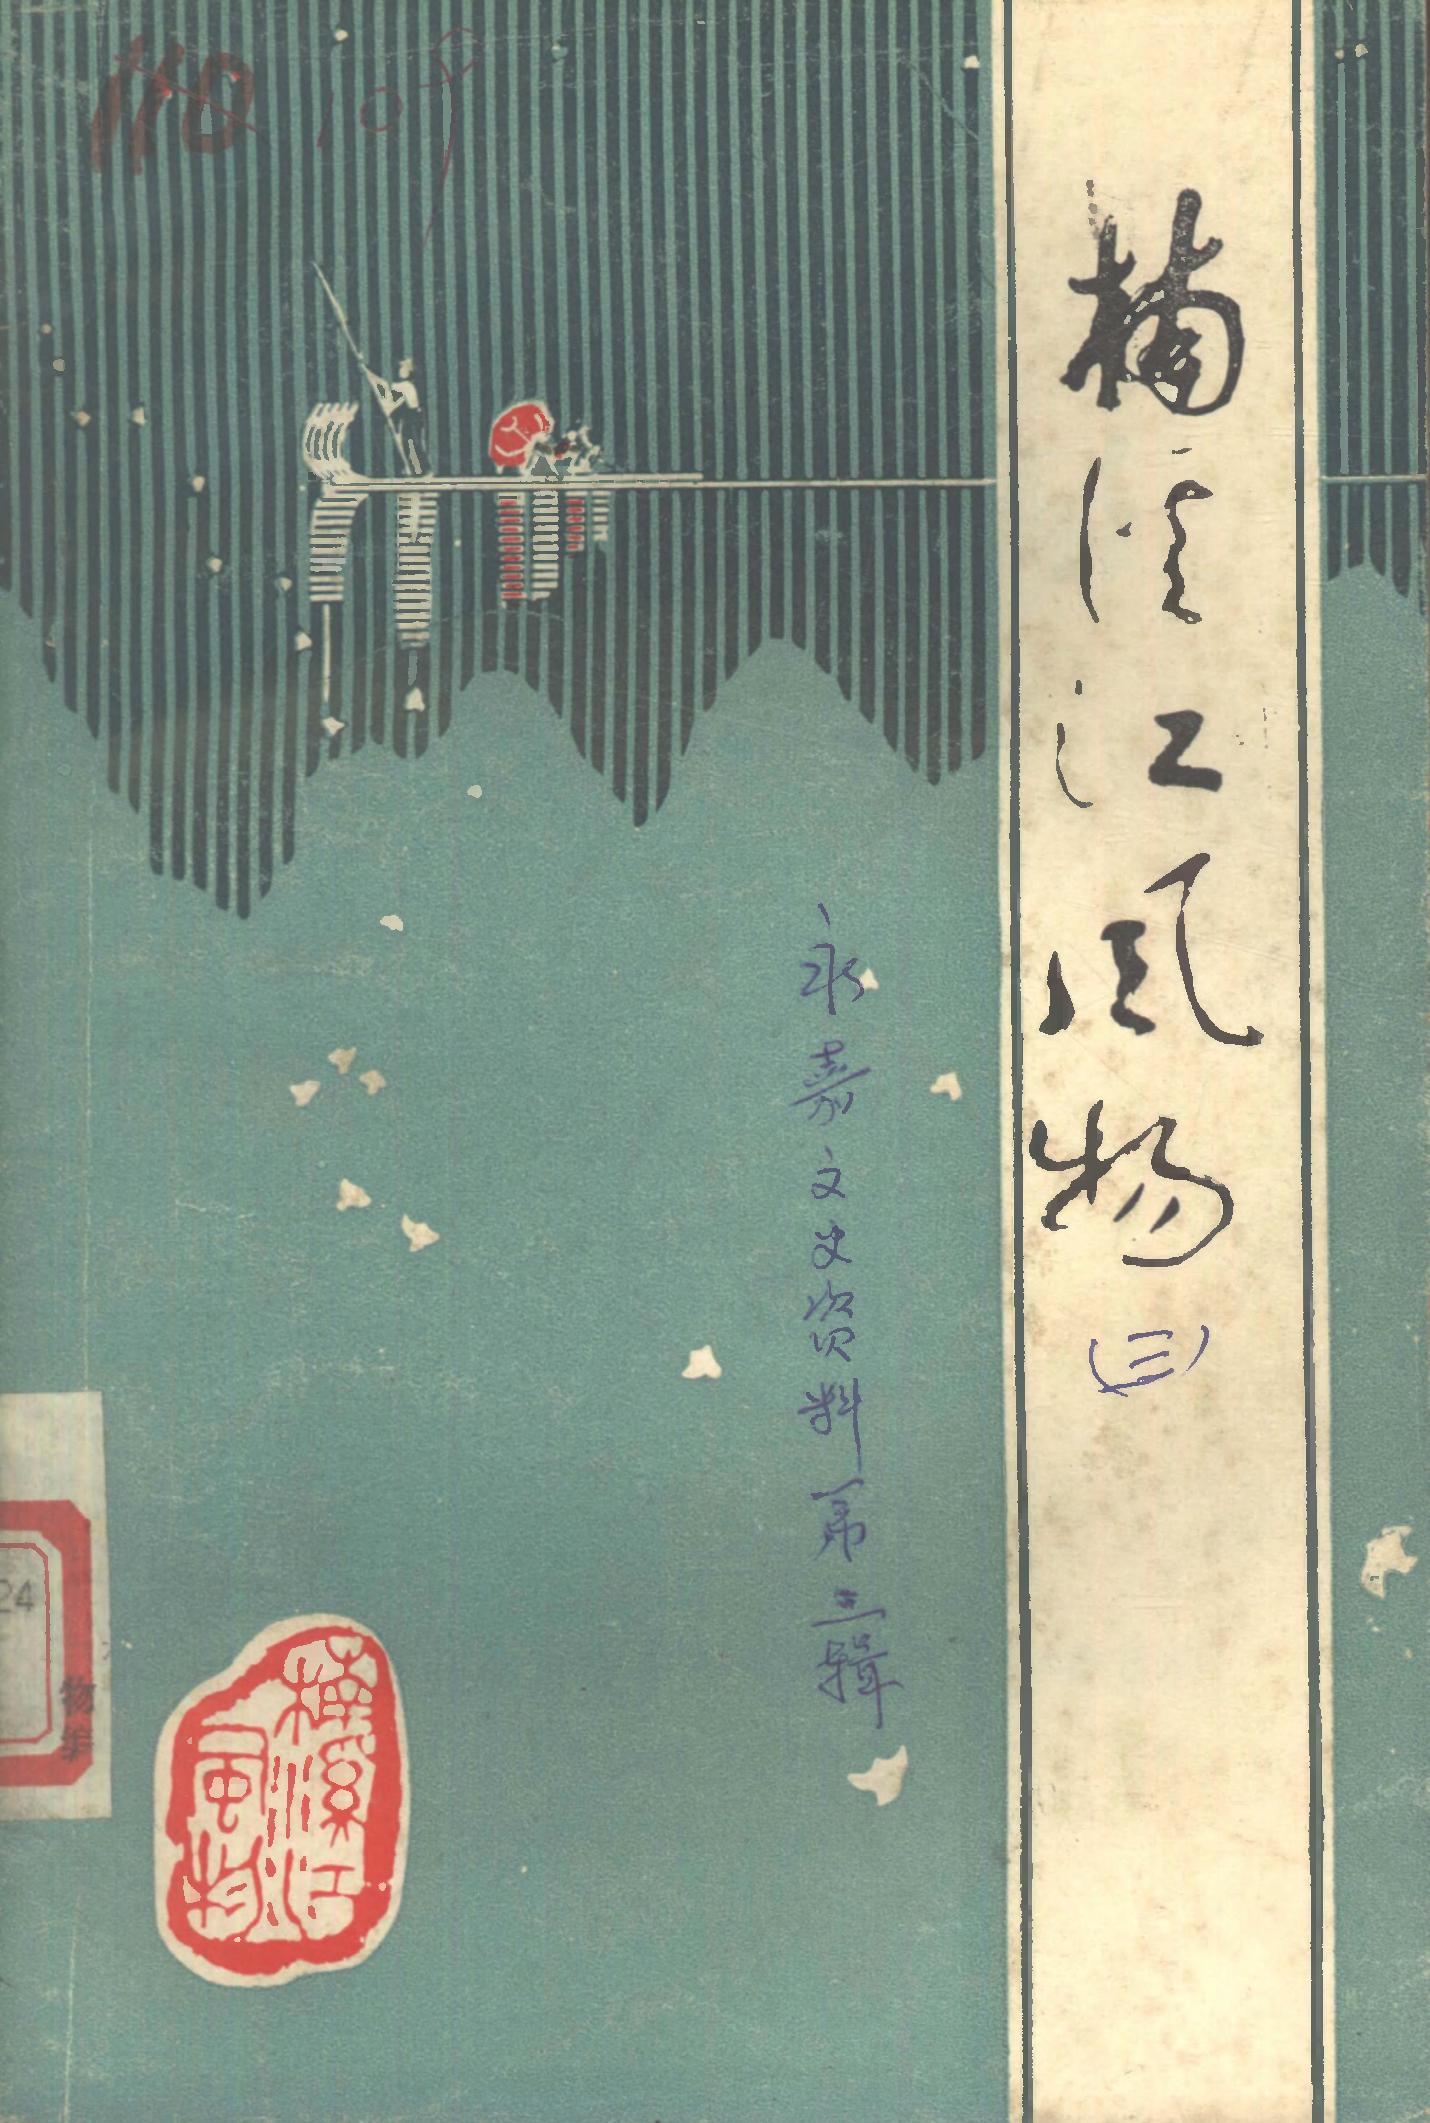 楠溪江风物
(三)
永嘉文史资料第三辑
110 109
楠溪江
风物
24